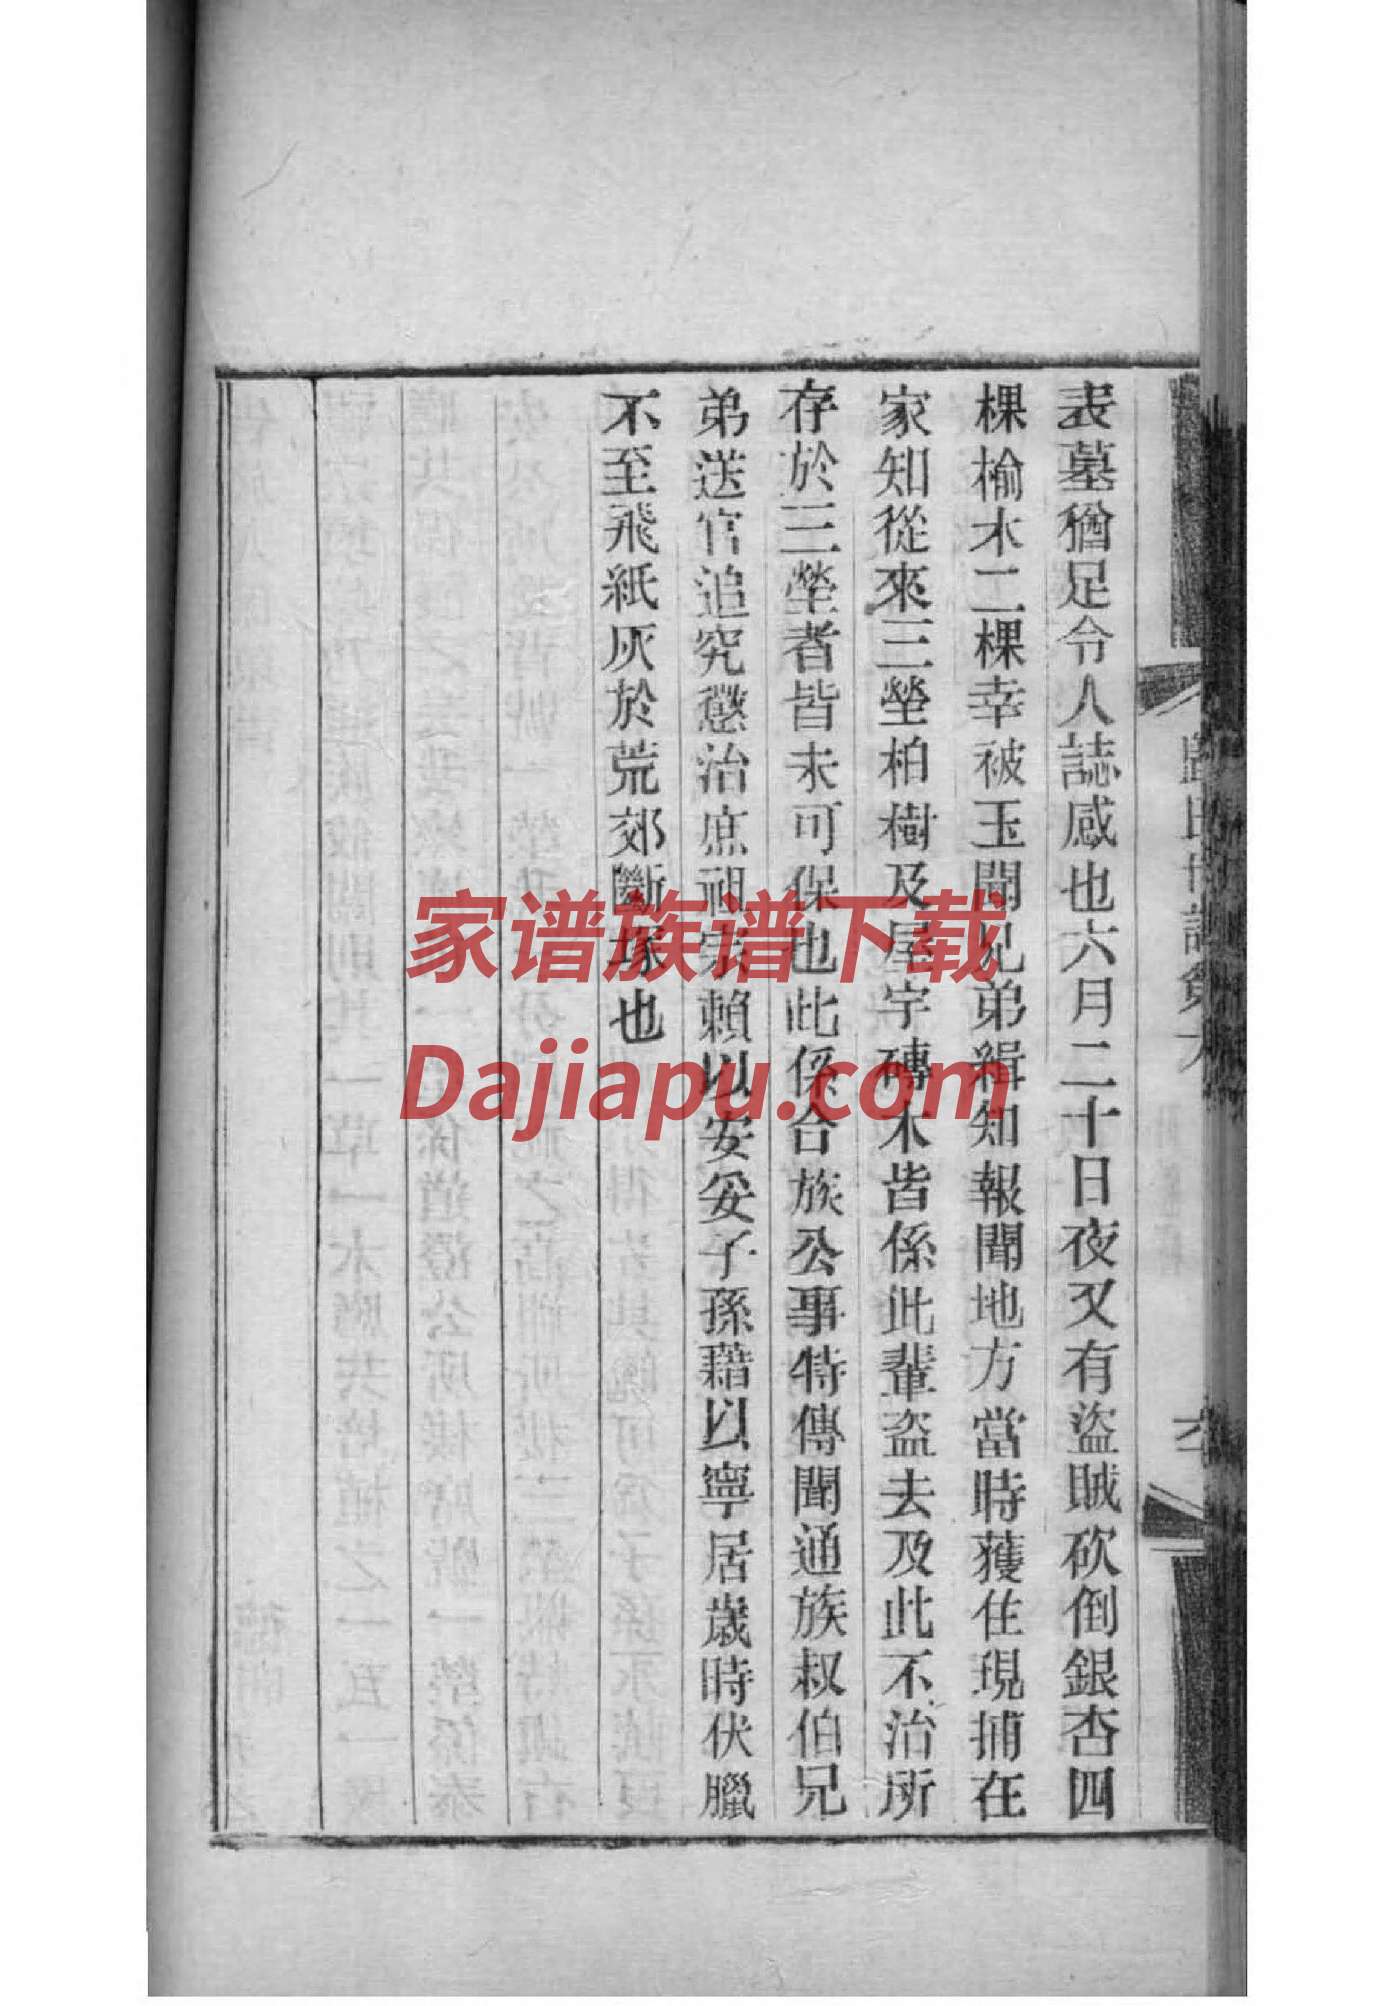 表墓猶足令人誌感也六月二十日夜又有盜賊砍倒銀杏四
棵榆木二棵幸被玉聞兄弟緝知報聞地方當時獲住現捕在
家知從來三塋柏樹及屋宇磚木皆係此輩盜去及此不治所
存於三塋者皆未可保也此係合族公事特傳聞通族叔伯兄
弟送官追究懲治庶祖宗賴以安妥子孫藉以寧居歲時伏臘
不至飛紙灰於荒郊斷塚也
家谱族谱下载
Dajiapu.com